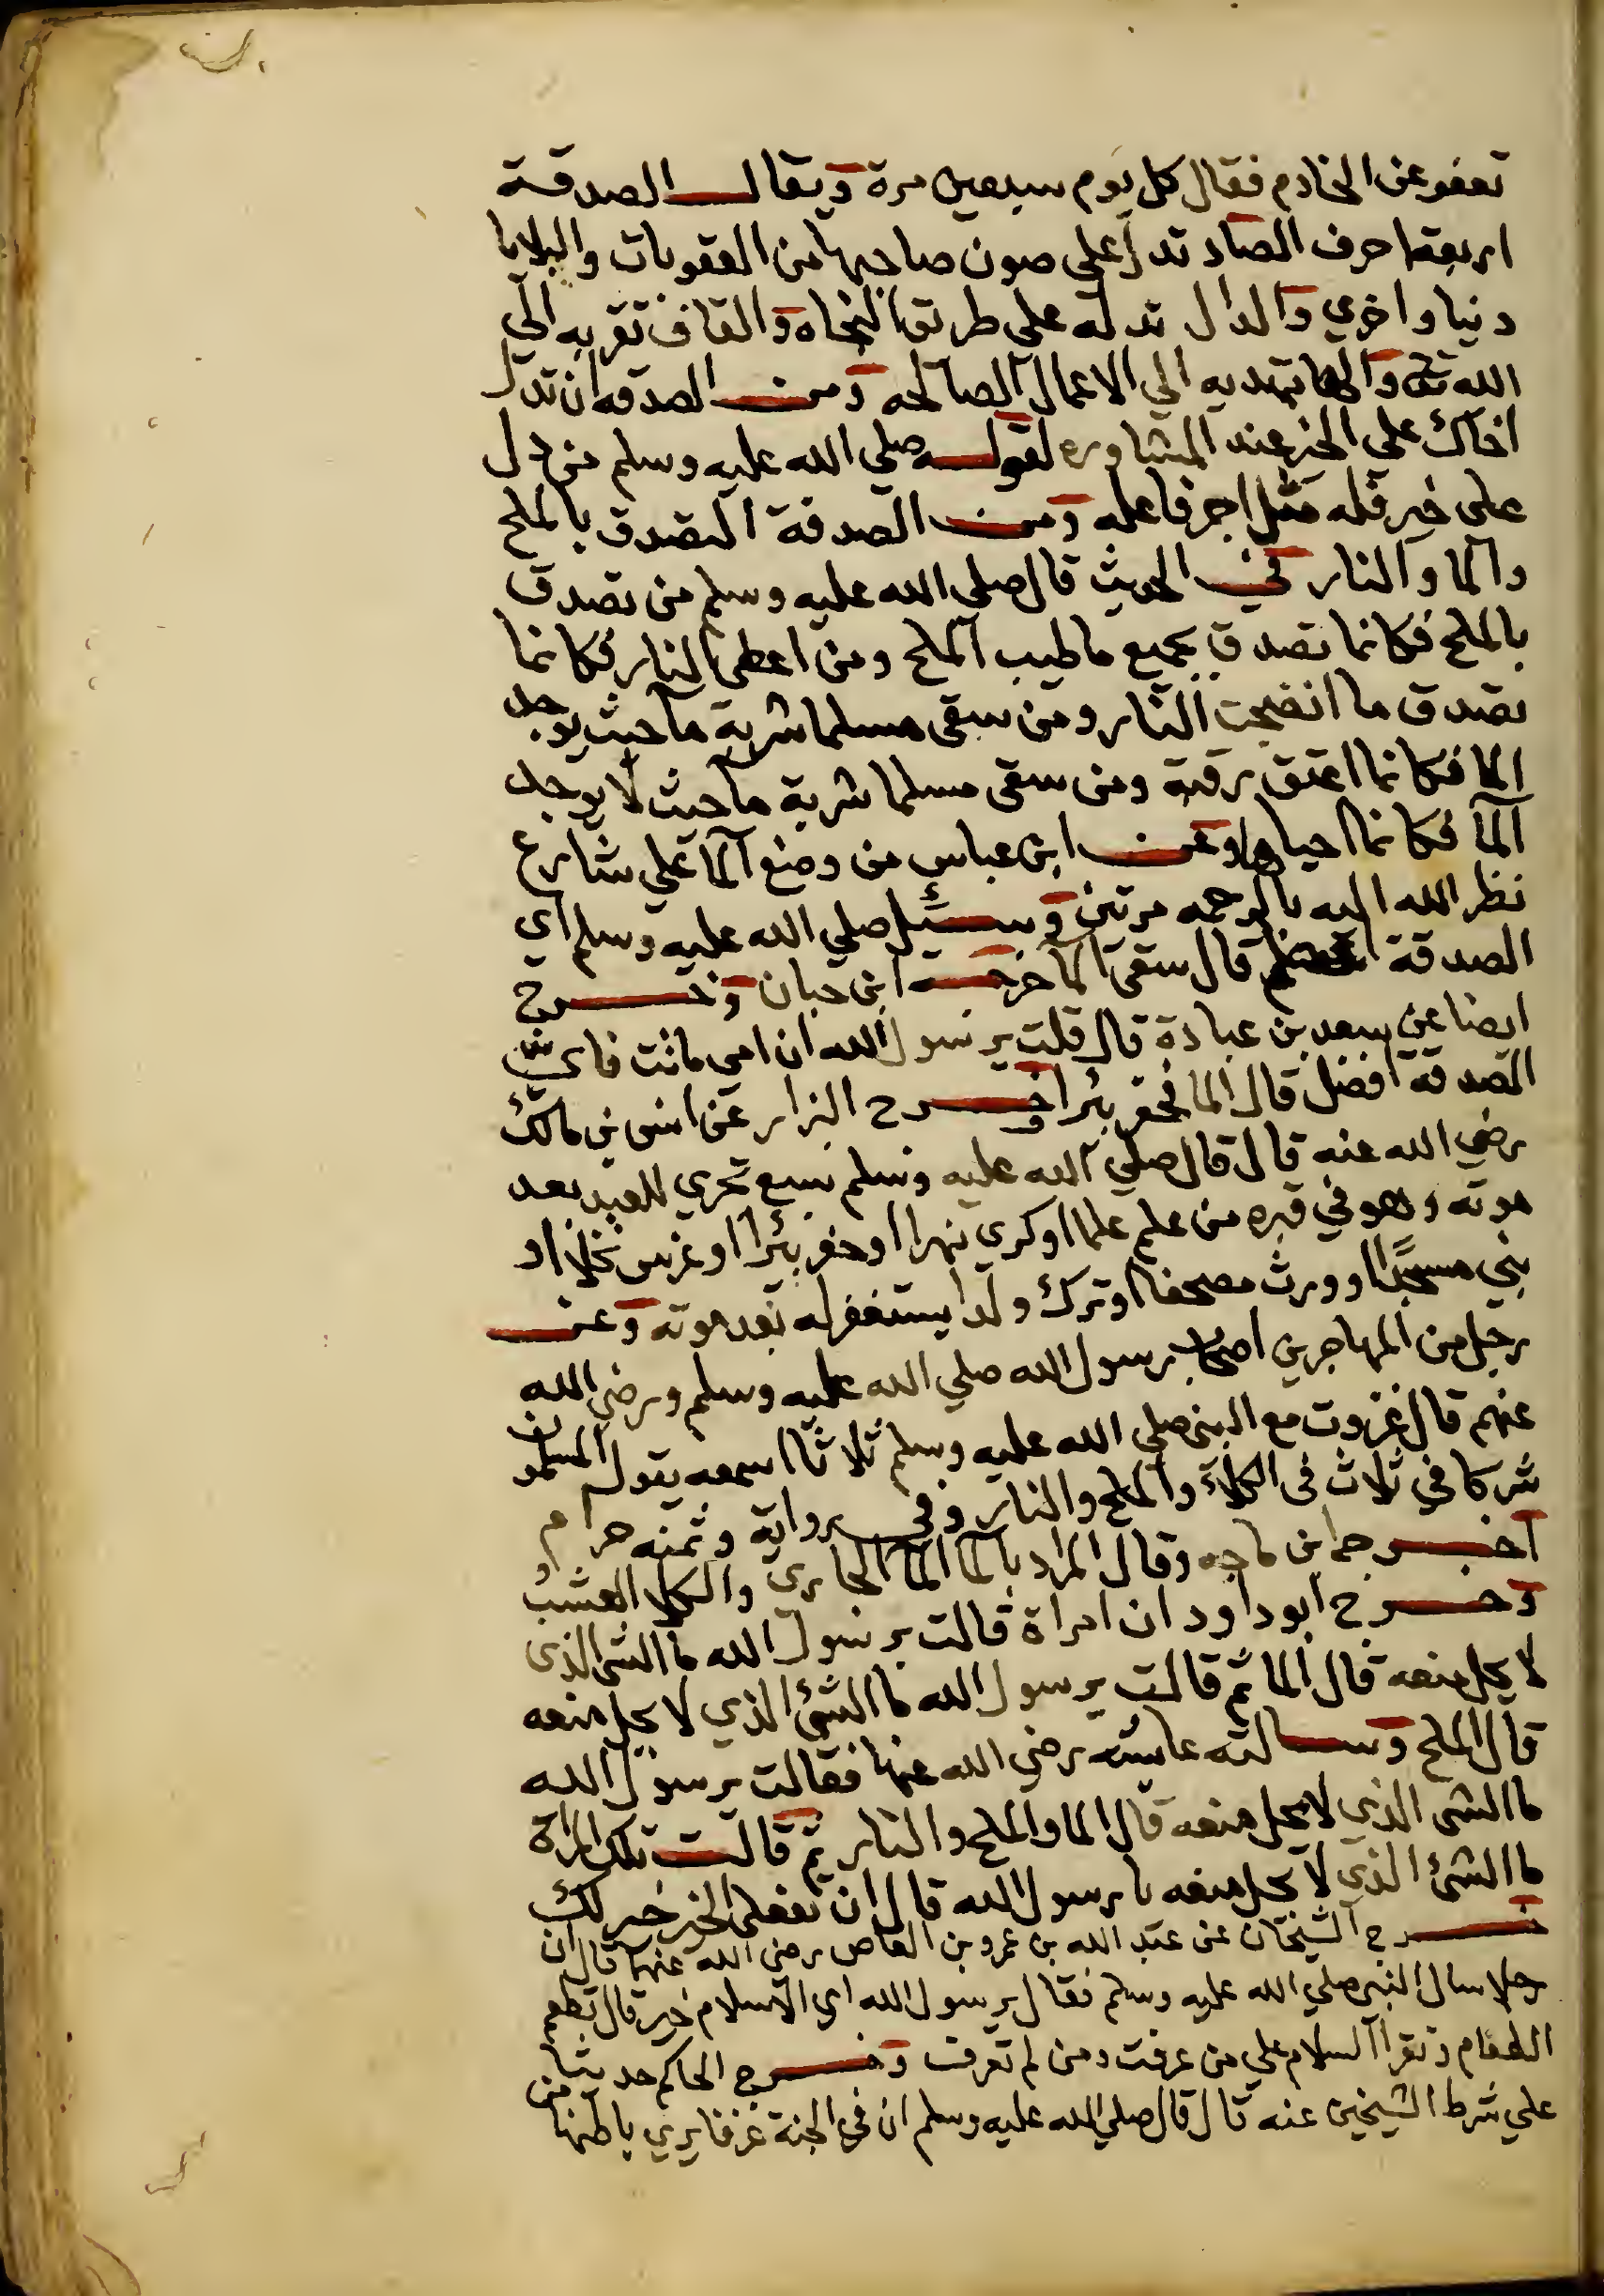 تعفو عن الخادم فقال كل يوم سبعين مرة ويقال الصدقة
اربعة احرف الصاد تدل على صون صاحبها من العقوبات والبلايا
دنيا واخري والدال تدله على طريق النجاة والقاف تقربه الي
الله تعالى والها تهديه الي الاعمال الصالحه ومن الصدقه ان تدل
اخاك علي الخير عند المشاوره لقوله صلي الله عليه وسلم من دل
على خير فله مثل اجر فاعله ومن الصدقة التصدق بالملح
والما والنار في الحديث قال صلي الله عليه وسلم من تصدق
بالملح فكانما تصدق بجميع ما طيب الملح ومن اعطى النار فكانما
تصدق ما انضجت النار ومن سقى مسلما شربة ما حيث يوجد
الما فكانما اعتق رقبة ومن سقى مسلما شربة ما حيث لا يوجد
الما فكانما احياها وعن ابن عباس من وضع الما علي شارع
نظر الله اليه بالرحمه مرتين وسئل صلي الله عليه وسلم اي
الصدقة افضل قال سقى الما خرجه ابن حبان وخرج
ايضا عن سعد بن عبادة قال قلت يرسول الله ان امي ماتت فاي
الصدقة افضل قال الما فحفر بئرا وخرج البزار عن انس بن مالك
رضي الله عنه قال قال صلي الله عليه وسلم سبع تجري للعبد بعد
موته وهو في قبره من علم علما او كري نهرا او حفر بئرا او غرس نخلا او
بني مسجدا او ورث مصحفا او ترك ولدا يستغفر له بعد موته وعن
رجل من المهاجرين اصحاب رسول الله صلي الله عليه وسلم ورضي الله
عنهم قال غزوت مع النبي صلي الله عليه وسلم ثلاثا اسمعه يقول المسلمون
شركا في ثلاث في الكلاء والملح والنار وفي رواية وثمنه حرام
اخرجه ابن ماجه وقال المراد بالما الما الجاري والكلا العشب
وخرج ابو داود ان امراة قالت يرسول الله ما الشي الذي
لا يحل منعه قال الما ثم قالت يرسول الله ما الشئ الذي لا يحل منعه
قال الملح وسالته عائشه رضي الله عنها فقالت يرسول الله
ما الشي الذي لا يحل منعه قال الما والملح والنار ثم قالت تلك المراة
ما الشئ الذي لا يحل منعه يا رسول الله قال ان تفعلى الخير خير لك
خرج الشيخان عن عبد الله بن عمرو بن العاص رضي الله عنهما قال ان
رجلا سال النبي صلي الله عليه وسلم فقال يرسول الله اي الاسلام خير قال تطعم
الطعام وتقرا السلام علي من عرفت ومن لم تعرف وخرج الحاكم حديثا
علي شرط الشيخين عنه قال قال صلي الله عليه وسلم ان في الجنة غرفا يري باطنها من